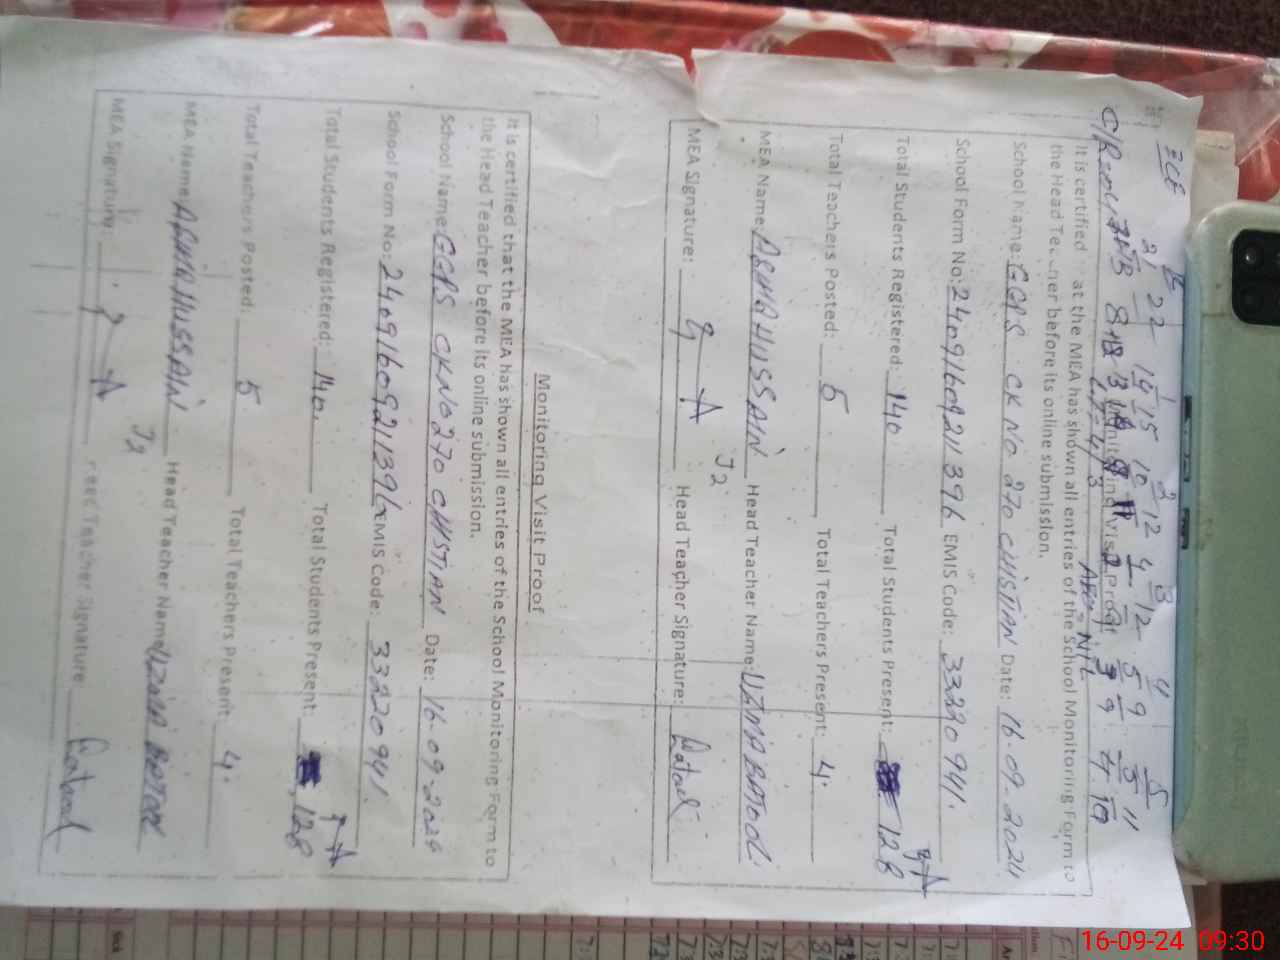 ECE 1 2 3 4 5
21 22 19 15 10 12 4 12 5 9 5 11
Monitoring Visit Proof
It is certified at the MEA has shown all entries of the School Monitoring Form to
the Head Teacher before its online submission.
School Name: GGPS CK NO 270 CHISTIAN Date: 16.09.2024
School Form No: 2409160921139L EMIS Code: 33220941.
Total Students Registered: 140 Total Students Present: 128
Total Teachers Posted: 5 Total Teachers Present: 4.
MEA Name: HUSSAIN Head Teacher Name: UZMA BATOOL
J2
MEA Signature: Head Teacher Signature: Batool
Monitoring Visit Proof
It is certified that the MEA has shown all entries of the School Monitoring Form to
the Head Teacher before its online submission.
School Name: GGPS CK NO 270 CHISTIAN Date: 16.09.2024
School Form No: 2409160921139L EMIS Code: 33220941.
Total Students Registered: 140. Total Students Present: 128
Total Teachers Posted: 5 Total Teachers Present 4.
MEA Name: HUSSAIN Head Teacher Name: UZMA BATOOL
J2
MEA Signature: Head Teacher Signature Batool
16-09-24 09:30